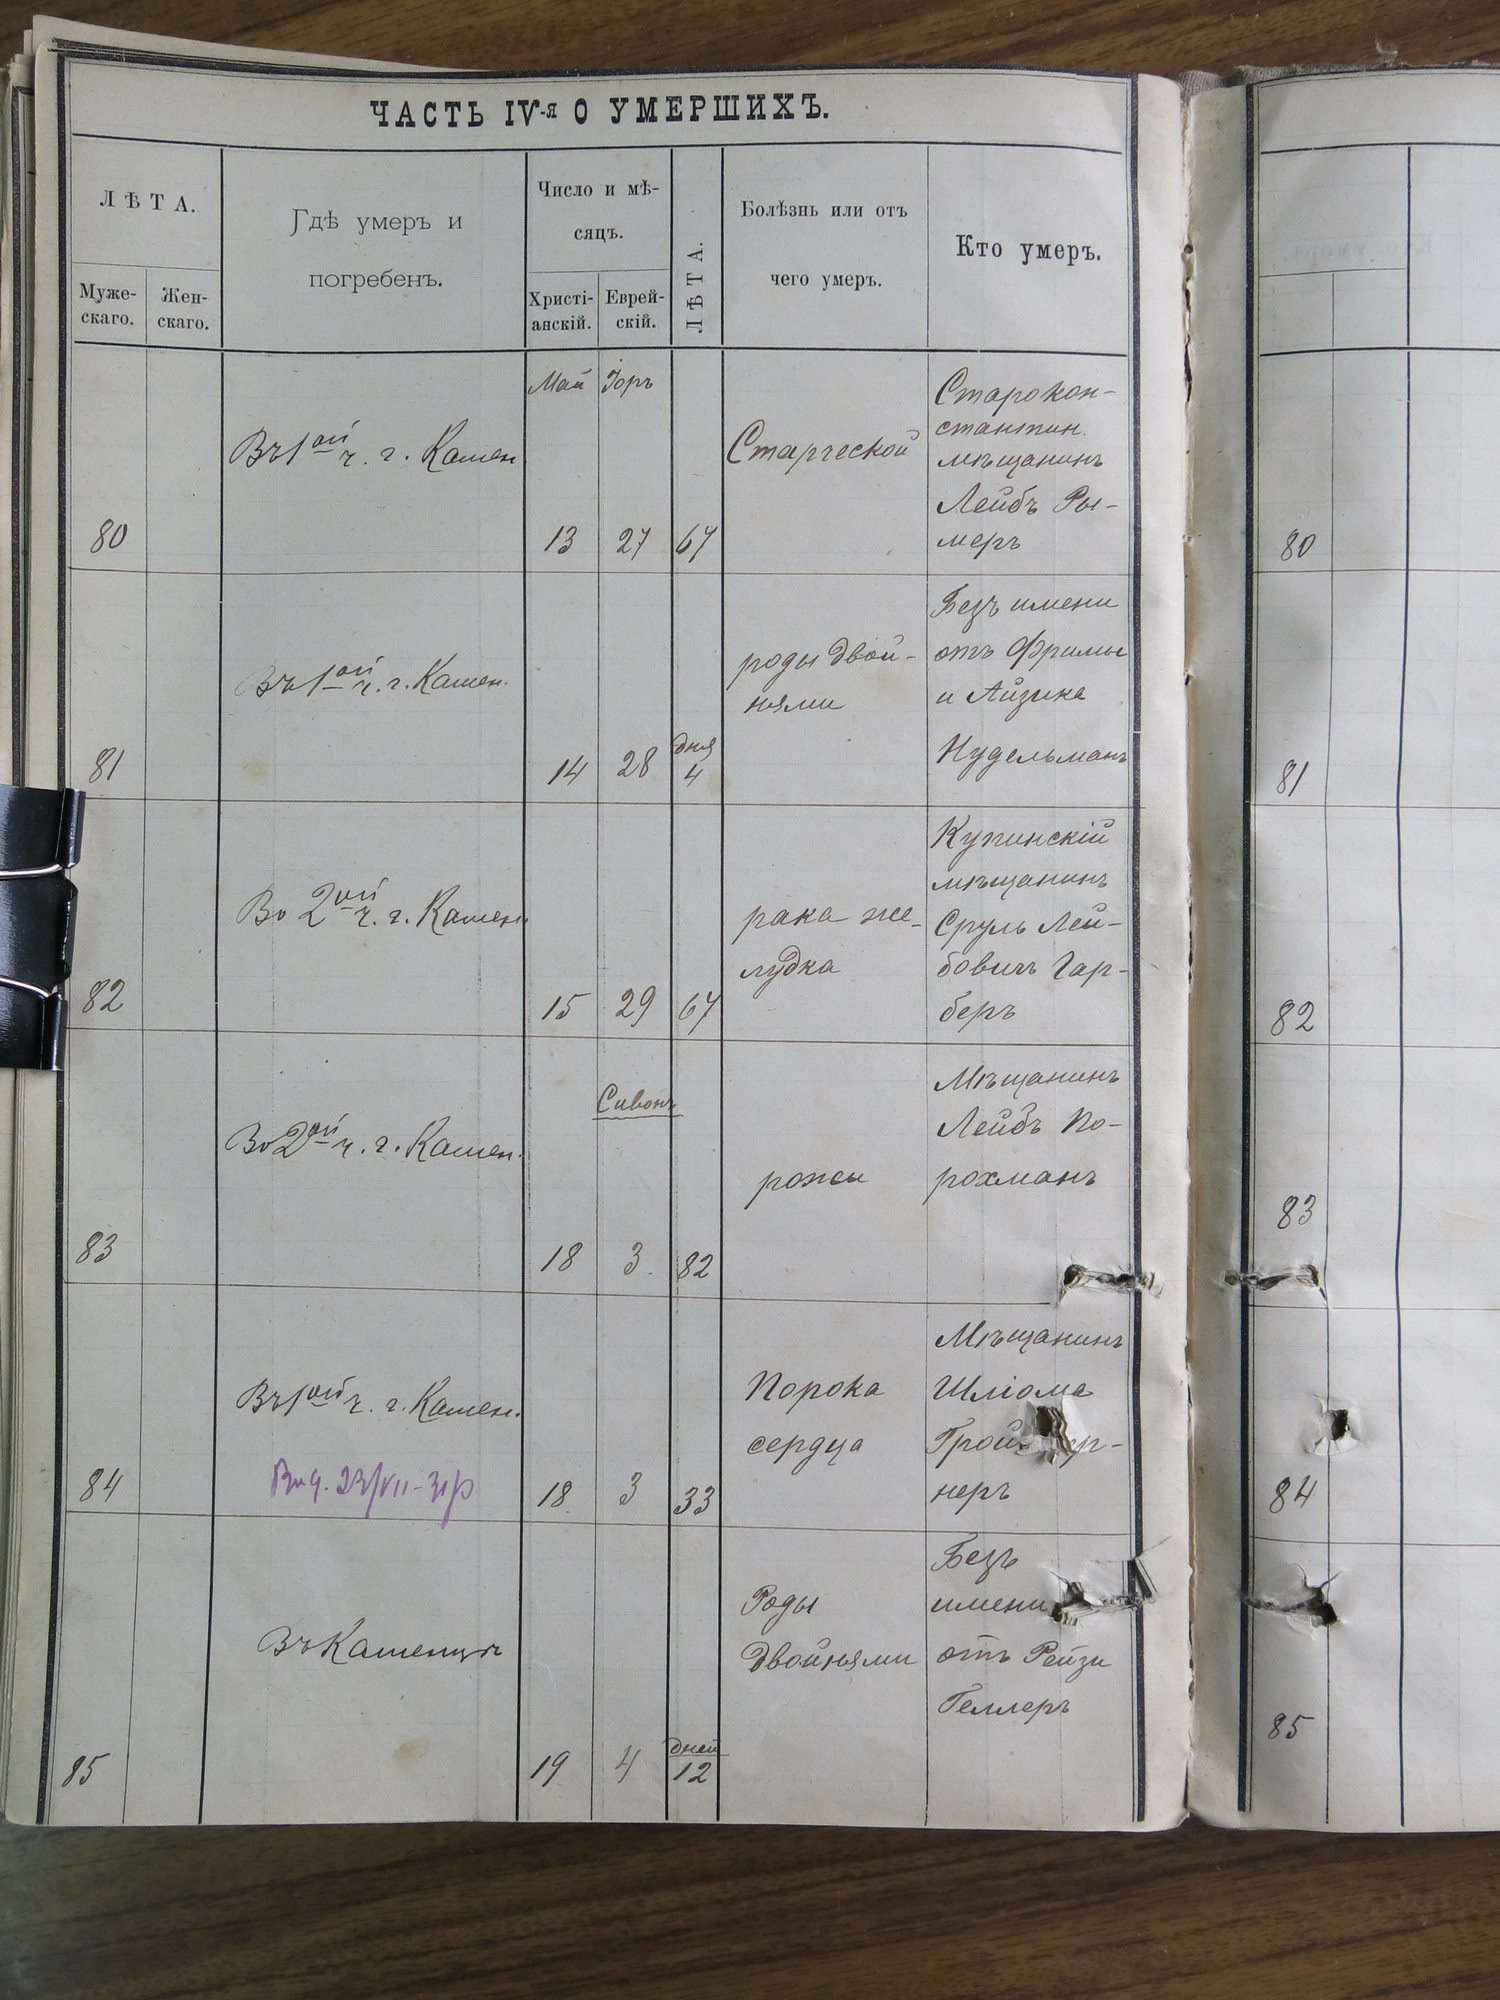 ЧАСТЬ IV-я О УМЕРШИХЪ.
ЛѢТА.
Муже-
скаго.
Жен-
скаго.
Гдѣ умеръ и
погребенъ.
Число и мѣ-
сяцъ.
Христі-
анскій.
Еврей-
скій.
ЛѢТА.
Болѣзнь или отъ
чего умеръ.
Кто умеръ.
80
Въ 1ой ч. г. Камен.
Май
13
Іоръ
27
67
Старческой
Старокон-
стантин.
мѣщанинъ
Лейбъ Ры-
меръ
81
Въ 1ой ч. г. Камен.
14
28
дня
4
роды двой-
нями
Безъ имени
отъ Фримы
и Айзика
Нудельманъ
82
Во 2ой ч. г. Камен.
15
29
67
рака же-
лудка
Купинскій
мѣщанинъ
Сруль Лей-
бовичъ Гар-
беръ
83
Во 2ой ч. г. Камен.
18
Сивонъ
3
82
рожи
Мѣщанинъ
Лейбъ По-
рохманъ
84
Въ 1ой ч. г. Камен.
18
3
33
Порока
сердца
Мѣщанинъ
Шліома
неръ
85
Въ Каменцѣ
19
4
дней
12
Роды
двойнями
Безъ
имени
отъ Рейзи
Геллеръ
80
81
82
83
84
85